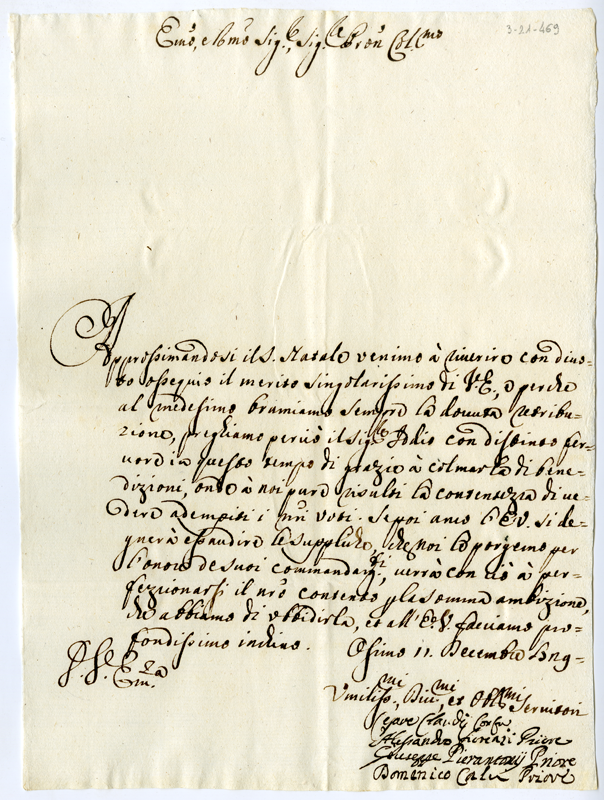 3-21-469
Emo, e Rmo Sig.r, Sig.r e Pron Coll.mo
Approssimandosi il S. Natale venimo à riverire con divo=
to ossequio il merito singolarissimo di V.E., e perche
al medesimo bramiamo sempre la dovuta retribu=
zione, preghiamo perciò il Sig.re Iddio con distinto fer=
vore in questo tempo di grazie à colmarla di bene=
dizioni, onde à noi pure risulti la contentezza di ve=
dere adempiti i nri voti. Se poi anco l'E.V. si de=
gnerà esaudire le suppliche, che noi le porgemo per
l'onore de suoi commandam.ti, verrà con ciò à per=
fezzionarsi il nro contento p la somma ambizione,
che abbiamo di ubbidirla, et all'E.V. facciamo pro=
fondissimo inchino. Osimo 11. Decembre
Umiliss.mi Div.mi et Obb.mi Servitori
Alessandro Fiorenzi Priore
Giuseppe Pierantonij Priore
Domenico Priore